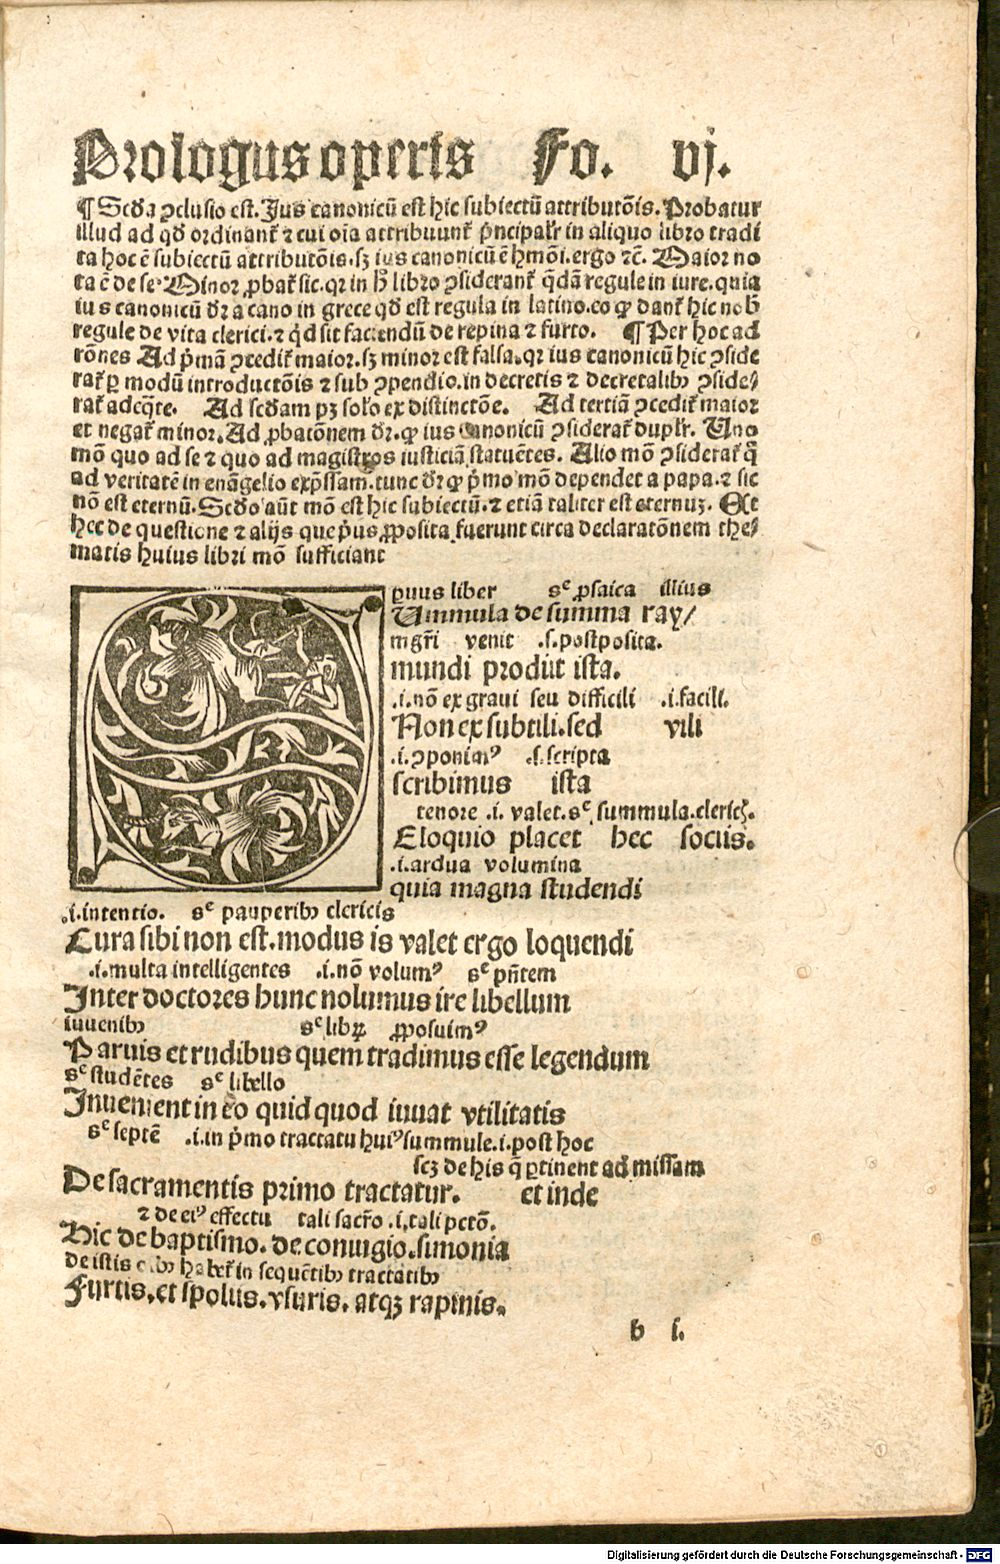 Prologus operis Fo. vj.
¶ Scďa ꝯclusio est. Jus canonicū est hic subiectū attributōis. Probatur
illud ad qď ordinant᷑ ⁊ cui oīa attribuunt᷑ pͥncipalr̄ in aliquo libro tradi
ta hoc ē subiectū attributōis. sꝫ ius canonicū ē hmōi. ergo ⁊c̄. Maior no
ta ē de se. Minor ꝓbat᷑ sic. qꝛ in h̄ libro ꝯsiderant᷑ q̄dā regule in iure. quia
ius canonicū dr̄ a cano in grece qď est regula in latino. eo ꝙ dant᷑ hic nob̄
regule de vita clerici. ⁊ qͥd sit faciendū de repina ⁊ furto. ¶ Per hoc ad
rōnes Ad pͥmā ꝯcedit᷑ maior. sꝫ minor est falsa. qꝛ ius canonicū hic ꝯside
rat᷑ ꝑ modū introductōis ⁊ sub ꝯpendio. in decretis ⁊ decretalibꝰ ꝯside⸗
rat᷑ adeq̄te. Ad scďam pꝫ solo ex distinctōe. Ad tertiā ꝯcedit᷑ maior
et negat᷑ minor. Ad ꝓbatōnem dr̄. ꝙ ius canonicū ꝯsiderat᷑ duplr̄. Uno
mō quo ad se ⁊ quo ad magistros iusticiā statuētes. Alio mō ꝯsiderat᷑ q̄
ad veritatē in euāgelio exp̄ssam. tunc dr̄ ꝙ pͥmo mō dependet a papa. ⁊ sic
nō est eternū. Scďo aūt mō est hic subiectū. ⁊ etiā taliter est eternuꝫ. Et
hec de questione ⁊ alijs que pͥus ꝓposita fuerunt circa declaratōnem the⸗
matis huius libri mō sufficiant
ꝑuus liber sᶜ ꝓsaica illius
Ummula de summa ray⸗
mgr̄i venit .s. postposita.
mundi prodijt ista.
.i. nō ex graui seu difficili .i. facili.
Non ex subtili. sed vili
.i. ꝯponimꝰ .s. scripta
scribimus ista
tenore .i. valet. sᶜ summula. clericꝭ.
Eloquio placet hec socijs.
.i. ardua volumina
quia magna studendi
.i. intentio. sᶜ pauperibꝰ clericis
Cura sibi non est. modus is valet ergo loquendi
.i. multa intelligentes .i. nō volumꝰ sᶜ pn̄tem
Inter doctores hunc nolumus ire libellum
iuuenibꝰ sᶜ libꝝ ꝓposuimꝰ
Paruis et rudibus quem tradimus esse legendum
sᶜ studētes sᶜ libello
Inuenient in eo quid quod iuuat vtilitatis
sᶜ septē .i. in pͥmo tractatu huiꝰ summule. i. post hoc
scꝫ de his q̄ ꝑtinent ad missam
De sacramentis primo tractatur. et inde
⁊ de eiꝰ effectu tali sacr̄o .i. tali pctō.
Hic de baptismo. de coniugio. simonia
de istis oībꝰ habet᷑ in sequētibꝰ tractatibꝰ
Furtis. et spolijs. vsuris. atqꝫ rapinis.
b j.
Digitalisierung gefördert durch die Deutsche Forschungsgemeinschaft - DFG